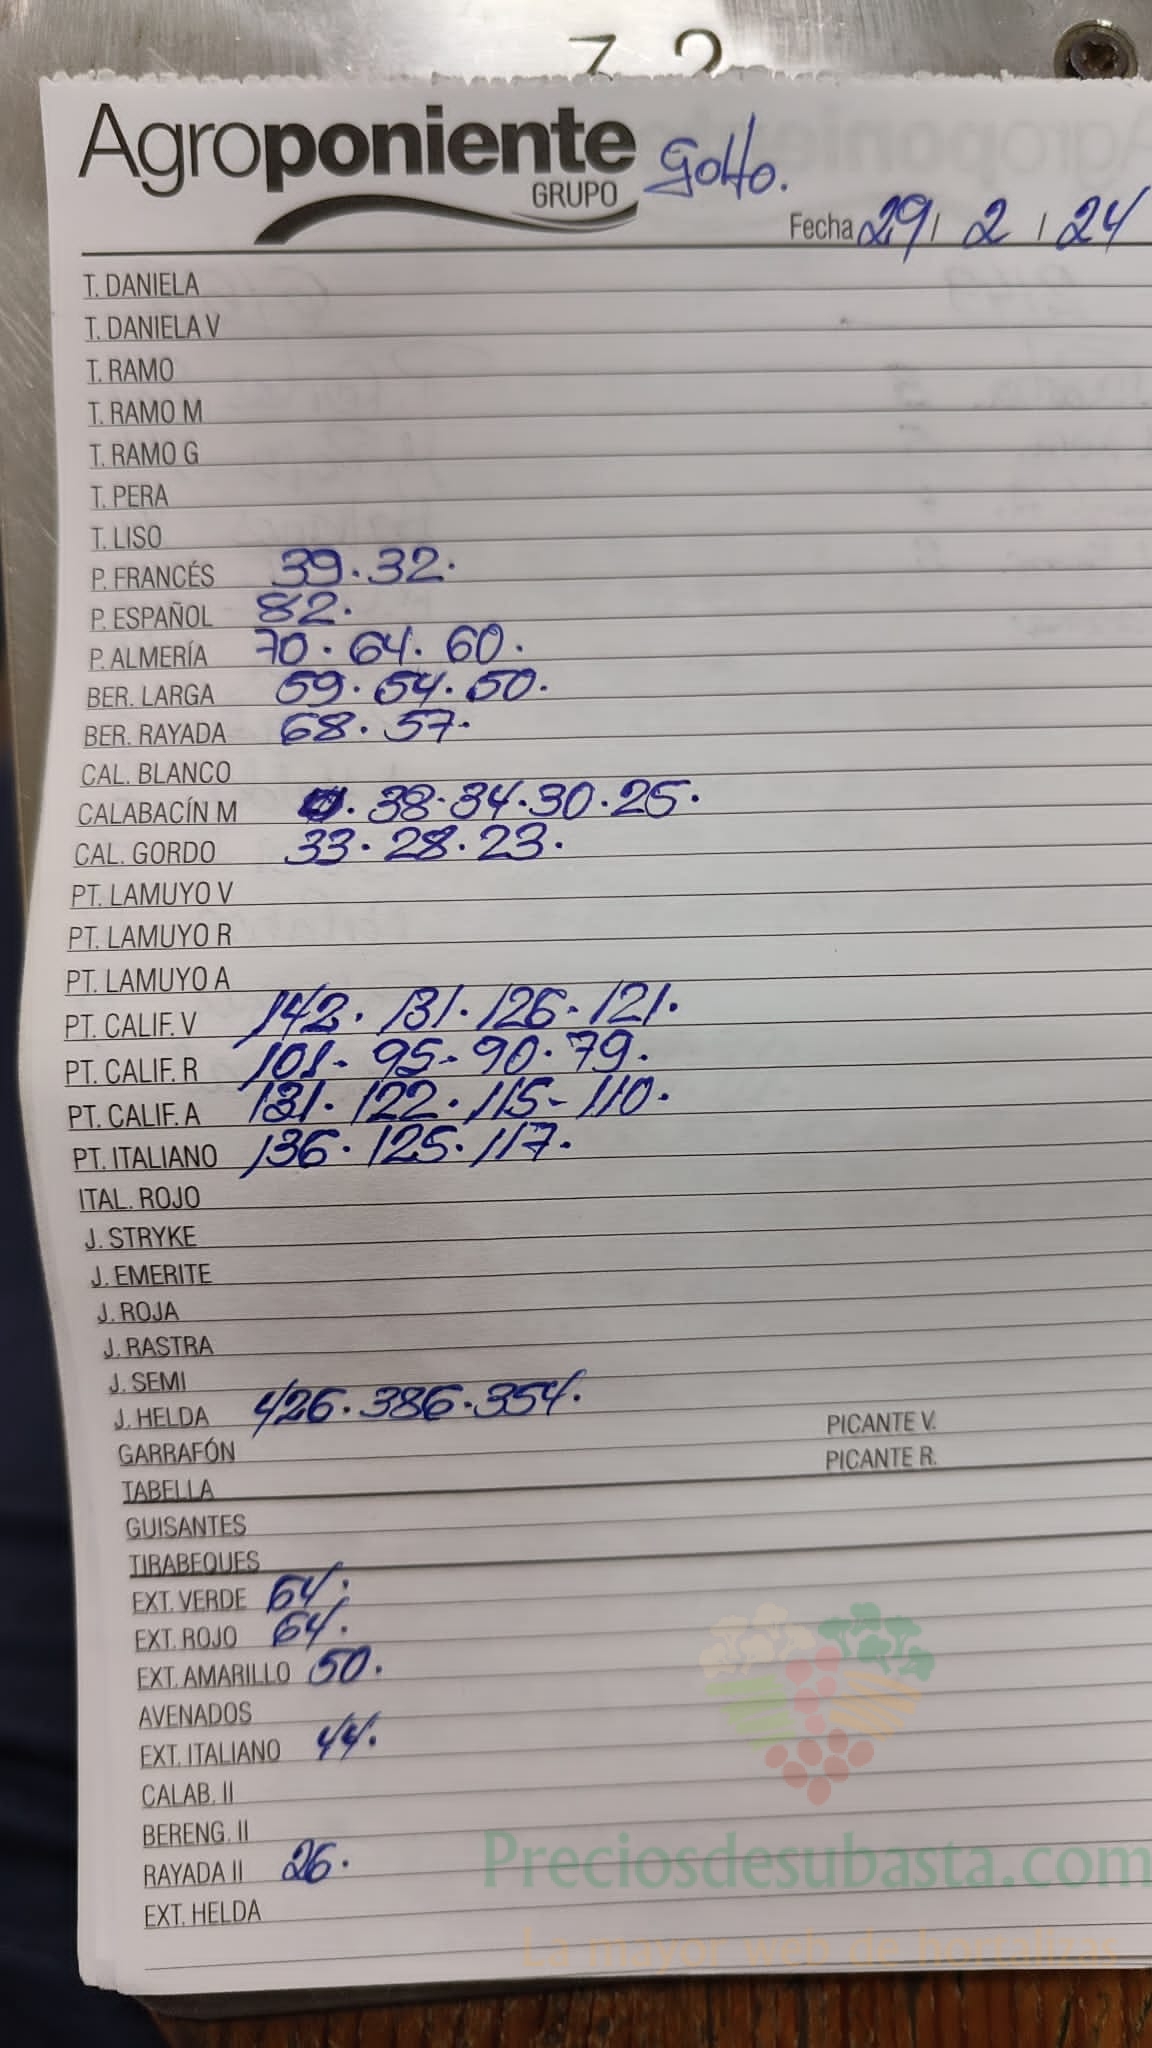 3 2
Agroponiente
GRUPO
Golfo.
Fecha 29 / 2 / 24
T. DANIELA
T. DANIELA V
T. RAMO
T. RAMO M
T. RAMO G
T. PERA
T. LISO
P. FRANCÉS 39. 32.
P. ESPAÑOL 82.
P. ALMERÍA 70. 64. 60.
BER. LARGA 59. 54. 50.
BER. RAYADA 68. 57.
CAL. BLANCO
CALABACÍN M 38. 34. 30. 25.
CAL. GORDO 33. 28. 23.
PT. LAMUYO V
PT. LAMUYO R
PT. LAMUYO A
PT. CALIF. V 142. 131. 126. 121.
PT. CALIF. R 101- 95- 90. 79.
PT. CALIF. A 131. 122. 115- 110.
PT. ITALIANO 136. 125. 117.
ITAL. ROJO
J. STRYKE
J. EMERITE
J. ROJA
J. RASTRA
J. SEMI
J. HELDA 426. 386. 354.
GARRAFÓN PICANTE V.
TABELLA PICANTE R.
GUISANTES
TIRABEQUES
EXT. VERDE 64.
EXT. ROJO 64.
EXT. AMARILLO 50.
AVENADOS
EXT. ITALIANO 44.
CALAB. II
BERENG. II
RAYADA II 26.
EXT. HELDA
Preciosdesubasta.com
La mayor web de hortalizas